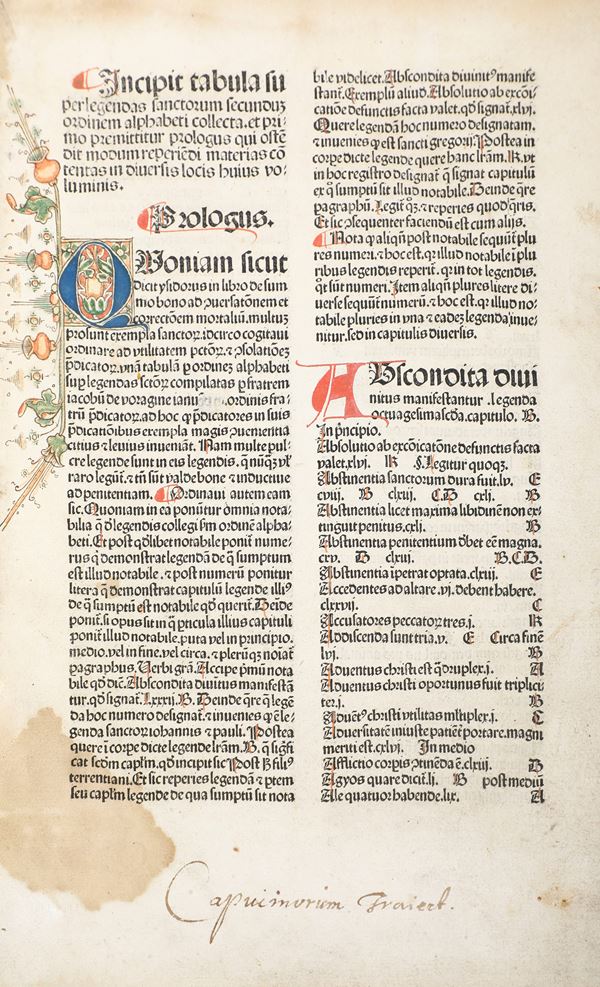 Incipit tabula su
per legendas sanctorum secunduꝫ
ordinem alphabeti collecta. et pri-
mo premittitur prologus qui ostē
dit modum reperiēdi materias cō
tentas in diuersis locis huius vo-
luminis.
Prologus.
QVoniam sicut
dicit ysidorus in libro de sum
mo bono ad ꝯuersatōnem et
correctōem mortaliū. multuꝫ
prosunt exempla sanctoꝝ. idcirco cogitaui
ordinare ad vtilitatem pctōꝝ. ⁊ ꝯsolatiōeꝫ
p̄dicatoꝝ. vnā tabulā ꝑ ordineꝫ alphabeti
suꝑ legendas sctōꝝ compilatas ꝑ fratrem
iacobū de voragine ianu ordinis fra-
trū p̄dicatoꝝ. ad hoc ꝙ p̄dicatores in suis
p̄dicatiōibus exempla magis ꝯuenientia
citius ⁊ leuius inueniāt. Nam multe pul-
cre legende sunt in eis legendis. q̄ nūqꝫ vl̓
raro legūt̄. ⁊ tn̄ sūt valde bone ⁊ inductiue
ad penitentiam. Ordinaui autem eam
sic. Quoniam in ea ponūtur om̄ia nota-
bilia q̄ ī legendis collegi ẜm ordinē alpha-
beti. Et post qd̓libet notabile ponit̄ nume-
rus q̄ demonstrat legendā de q̄ sumptum
est illud notabile. ⁊ post numerū ponitur
littera q̄ demonstrat capitulū legende illi⁹
de q̄ sūptū est notabile qd̓ querit̄. Deīde
ponit̄. si opus sit in q̄ pticula illius capituli
ponit̄ illud notabile. puta vel in principio.
medio. vel in fine. vel circa. ⁊ plerūqꝫ noīat̄
paragraphus. Verbi grā. Accipe p̄mū nota
bile qd̓ dīc. Abscondita diuīitus manifestā
tur. qd̓ signat̄. lxxxij. B. Deinde q̄re q̄ legē
da hoc numero designat̄. ⁊ inuenies ꝙ ē le-
genda sanctoꝝ iohannis ⁊ pauli. Postea
quere ī corꝑe dicte legende lr̄am. B. q̄ sigfi
cat scd̓m capl̓m. qd̓ incipit sic Post ꝑ fili⁹
terrentiani. Et sic reperies legendā ⁊ ꝑtem
seu capl̓m legende de qua sumptū sit nota
bile videlicet. Abscondita diuinit⁹ manife
stant̄. Exemplū aliud. Absolutio ab excōi-
catiōe defunctis facta valet. qd̓ signat̄. xlvj.
Quere legendā hoc numero designatam.
⁊ inuenies ꝙ est sancti gregorij. Postea in
corꝑe dicte legende quere hanc lr̄am. K. vt
in hoc registro designat̄ q̄ signat capitulū
ex q̄ sumptū sit illud notabile. Deinde q̄re
ꝑagraphū. Legit̄ qꝫ. ⁊ reperies quod q̄ris.
Et sic ꝯsequenter faciendū est cum alijs.
Nota ꝙ aliqn̄ post notabile sequūt̄ plu
res numeri. ⁊ hoc est. qꝛ illud notabile ī plu
ribus legendis reperit̄. qꝛ in tot legendis.
qt̄ sūt numeri. Item aliqn̄ plures litere di-
uerse sequūt̄ numerū. ⁊ hoc est. qꝛ illud no-
tabile pluries in vna ⁊ eadeꝫ legenda īue-
nitur. sed in capitulis diuersis.
ABscondita diui
nitus manifestantur. legenda
octuagesimascd̓a. capitulo. B.
In p̄ncipio.
Absolutio ab excōicatōne defunctis facta
valet. xlvj. K §. Legitur quoqꝫ.
Abstinentia sanctorum dura fuit. lv. E
cviij. B clxiij. C. D cxlj. B
Abstinentia licet maxima libidinē non ex-
tinguit penitus. cxlj. B
Abstinentia penitentium dꝫbet eē magna.
cxv. D clxiij. B. C. D.
Abstinentia īpetrat optata. clxiij. E
Accedentes ad altare. vj. debent habere.
clxxvij. C
Accusatores peccatoꝝ tres. j. K
Addiscenda sunt tria. v. E Circa finē
lvj. B
Aduentus christi est q̄druplex. j. A
Aduentus christi oportunus fuit triplici
ter. j. B
Aduēt⁹ christi vtilitas ml̓tiplex. j. C
Aduersitatē iniuste patiēt̄ portare. magni
meriti est. cxlvj. In medio
Afflictio corꝑis ꝯtinēda ē. clxiij. D
Agyos quare dicit̄. lj. B post mediū
Ale quatuor habende. lix. A
Capucinorum Traiect.